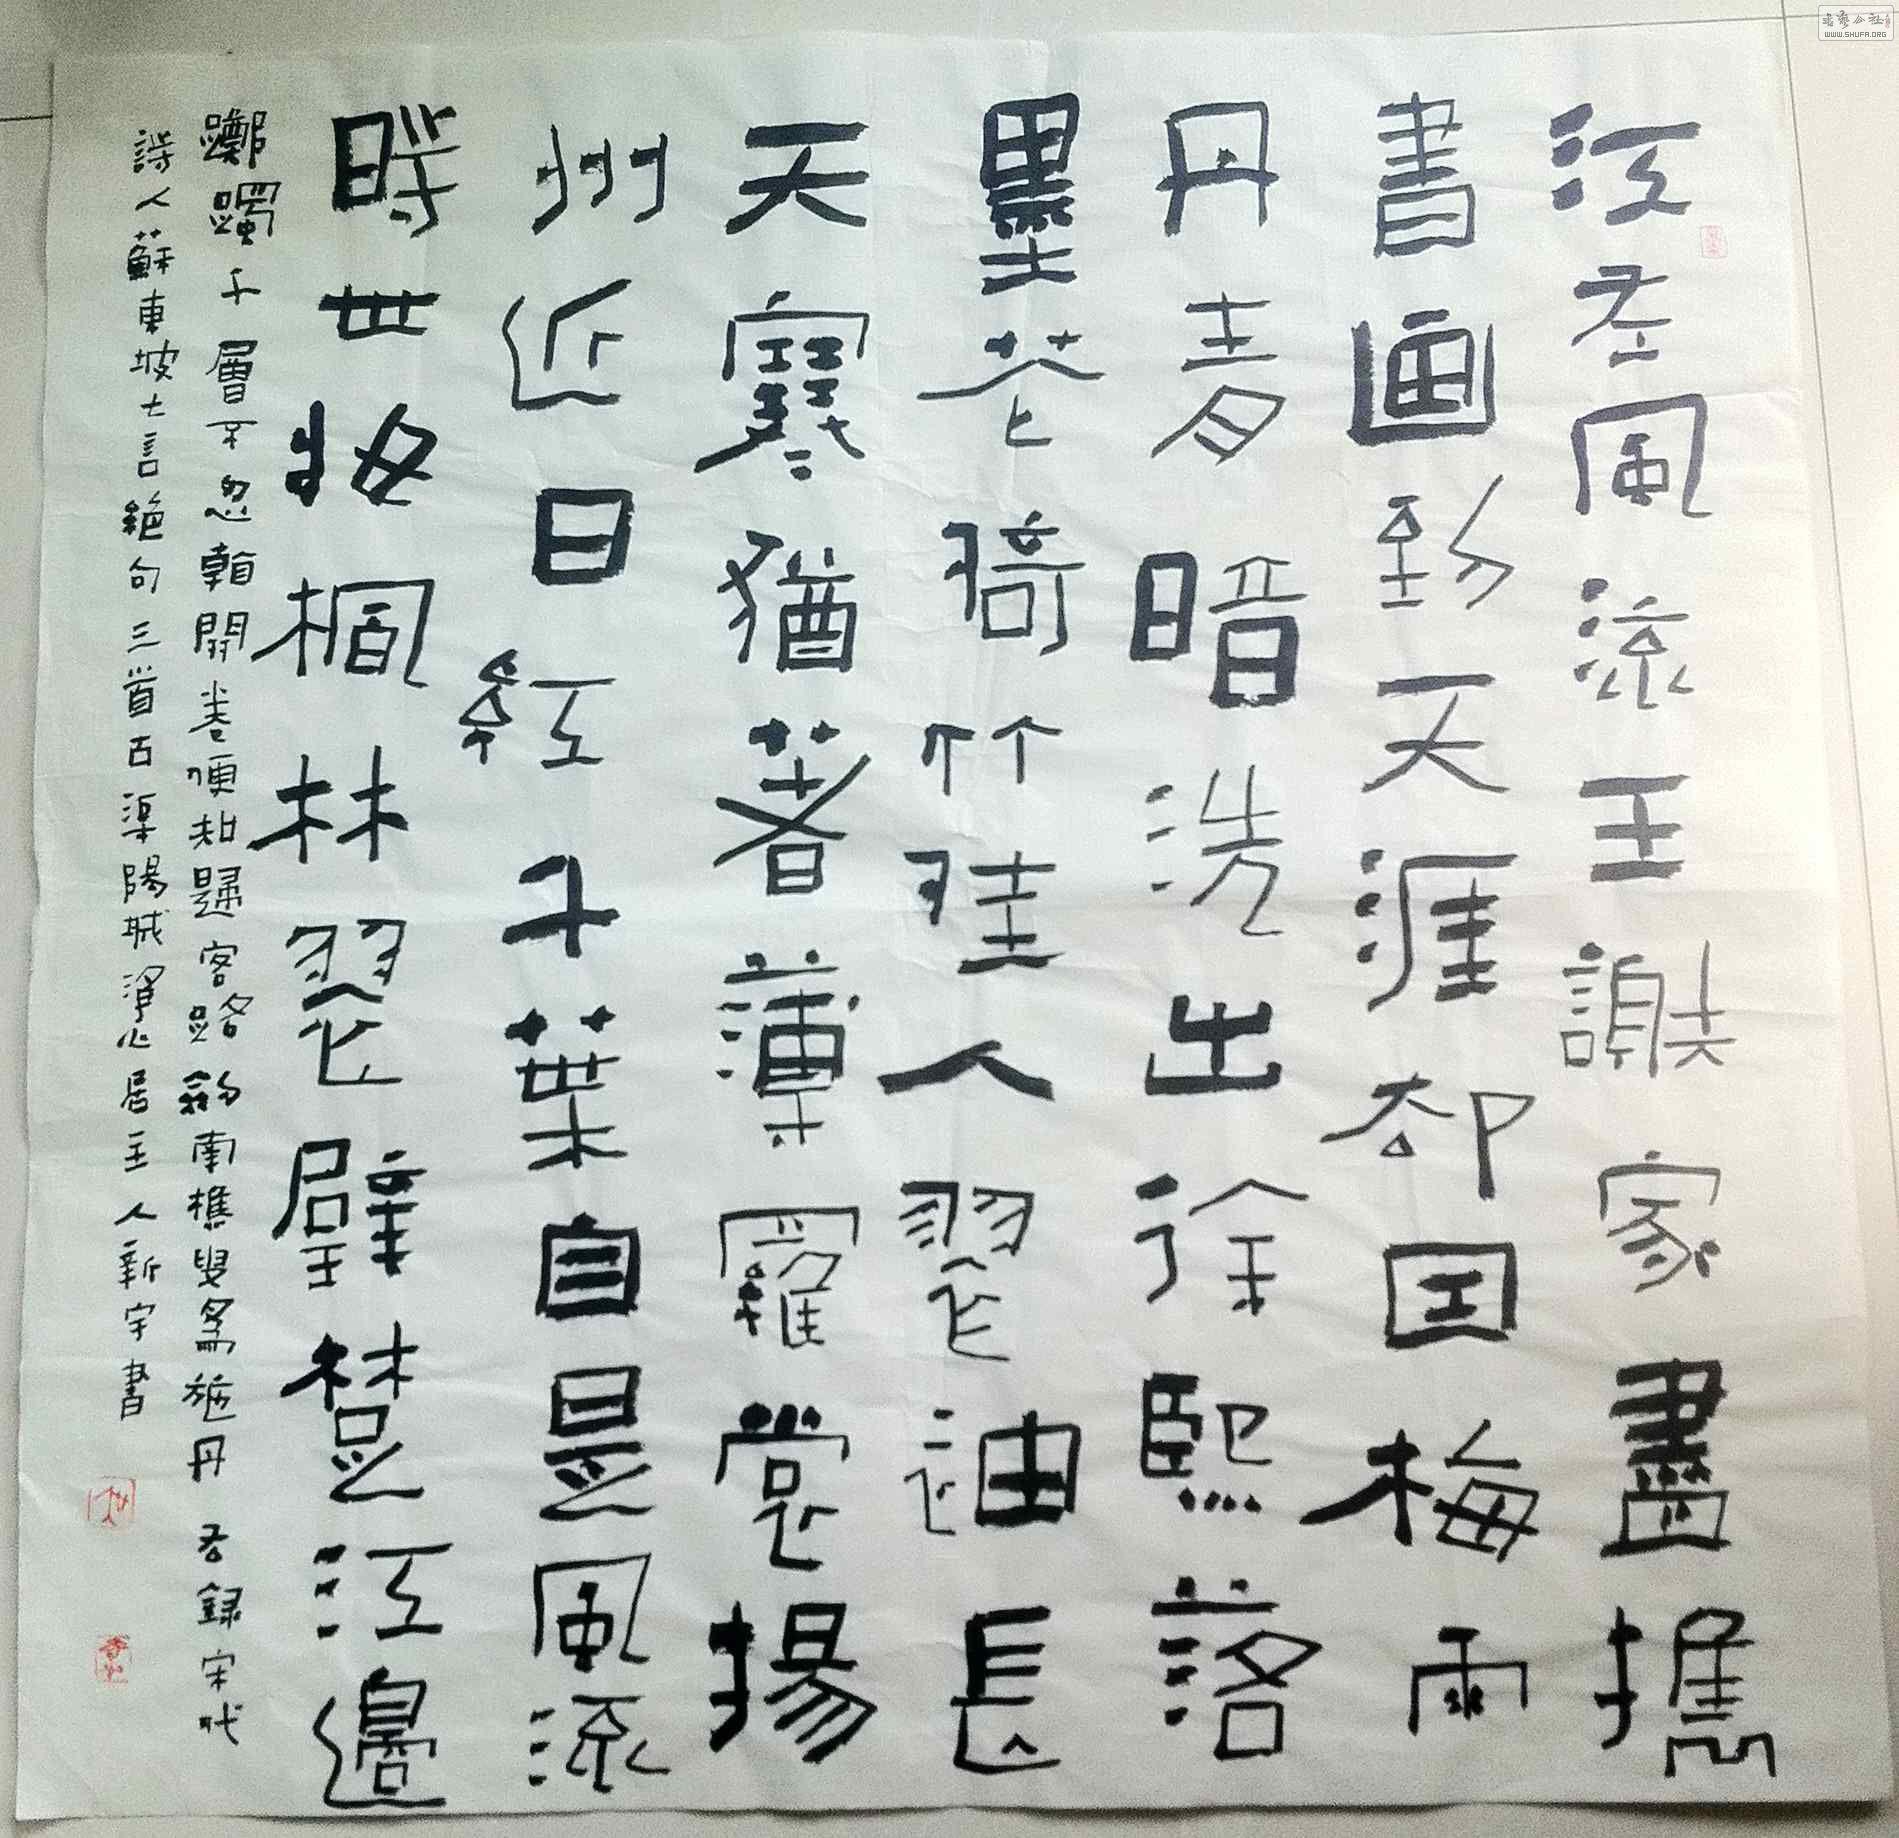 江左風流王謝家盡攜
書画到天涯却因梅雨
丹青暗洗出徐熙落
墨花倚竹佳人翠袖長
天寒猶著薄羅裳揚
州近日紅千葉自是風流
時世妝楓林翠壁楚江邊
躑躅千層不忍看開卷便知歸客路劍南樵叟為施丹 右録宋代
詩人蘇東坡七言絕句三首古渠陽城淨心居主人新宇書
书艺公社
WWW.SHUFA.ORG